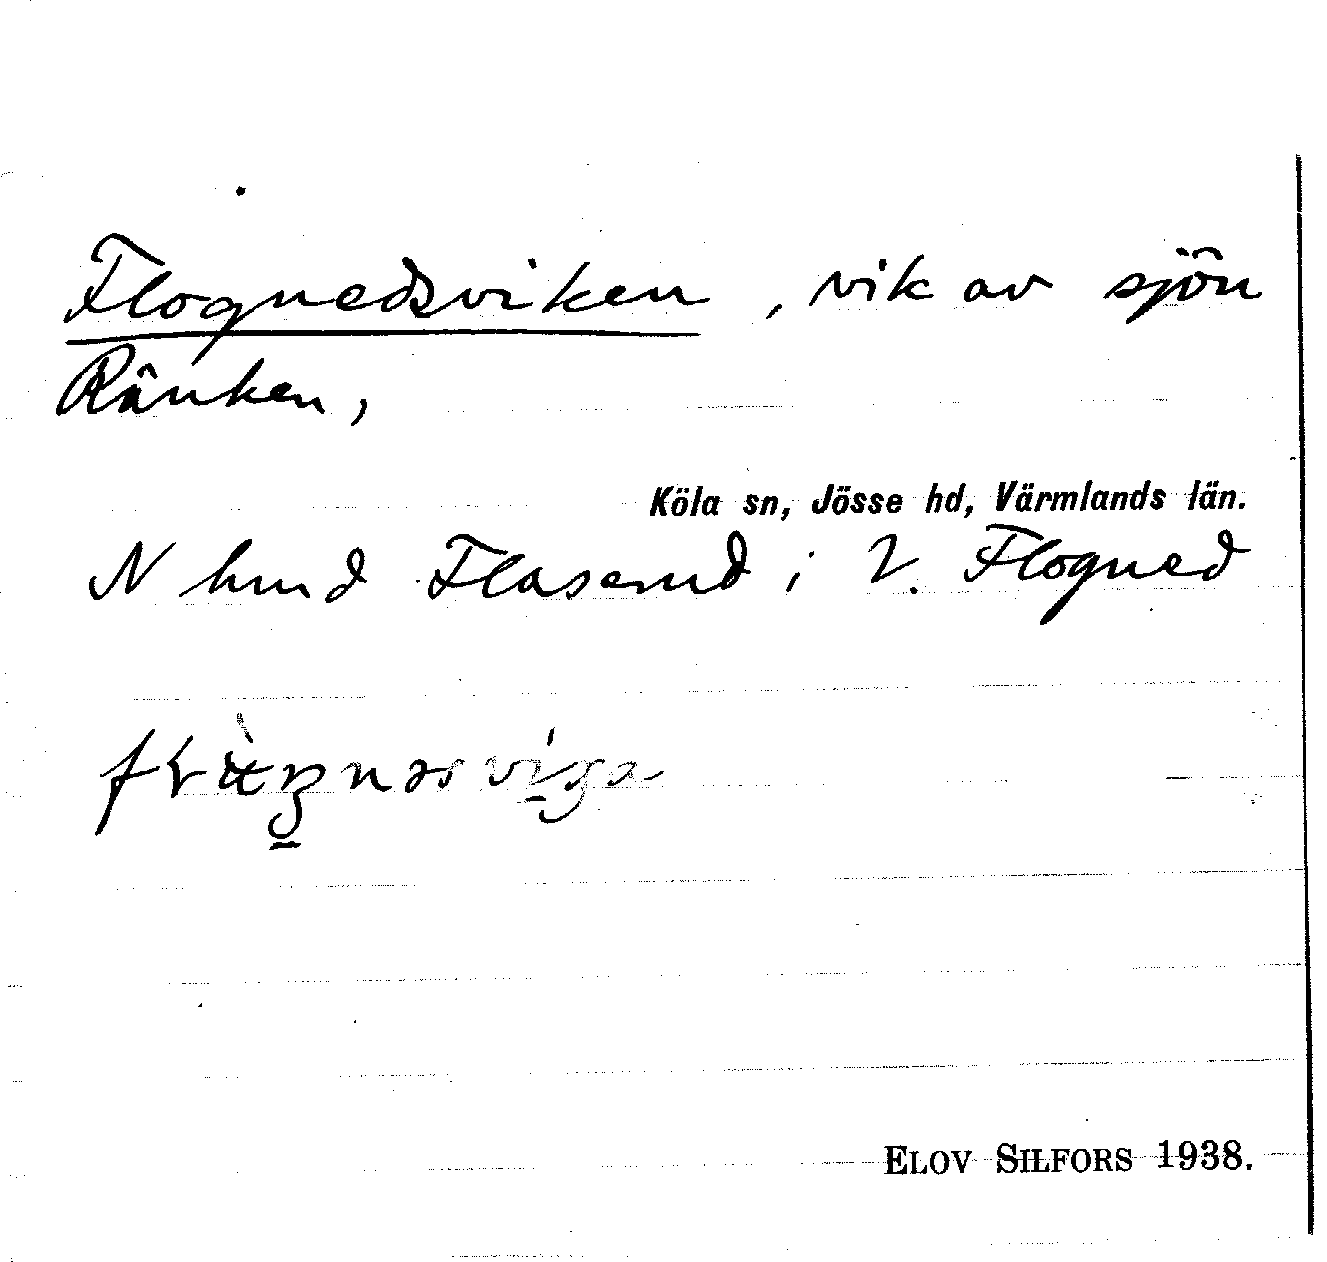 Flognedsviken, vik av sjön
Ränken,
Köla sn, Jösse hd, Värmlands län.
N Flaserud i V. Flogned
ELOV SILFORS 1938.